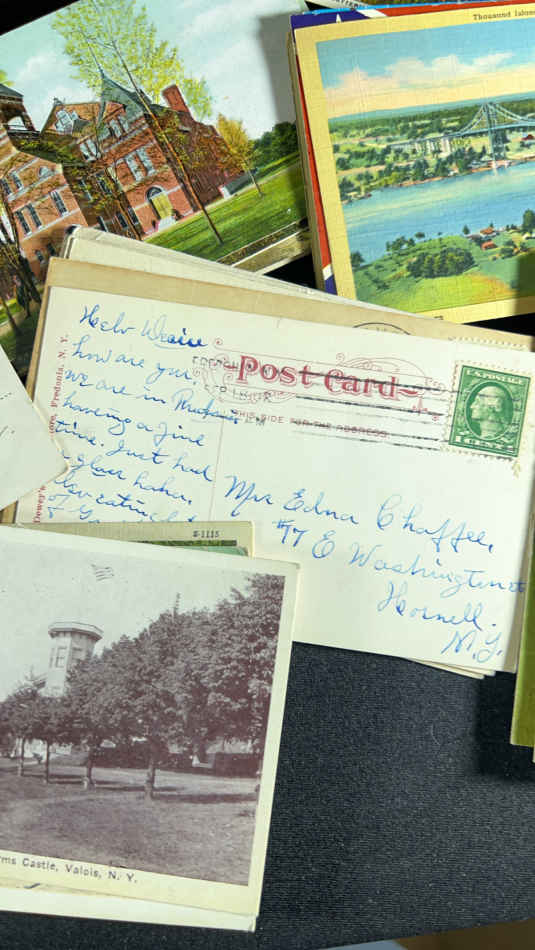 Thousand Islan
Hello
how are you.
we are in
having a fine
time. Just had
a glass
also eating
of
Dewey's
ore, Fredonia, N. Y.
Post Card
THIS SIDE FOR THE ADDRESS
U.S. POSTAGE
1 CENT 1
Mrs Edna Chaffee,
#7 E Washington st
Hornell.
N.Y.
S-1115
rms Castle, Valois, N. Y.